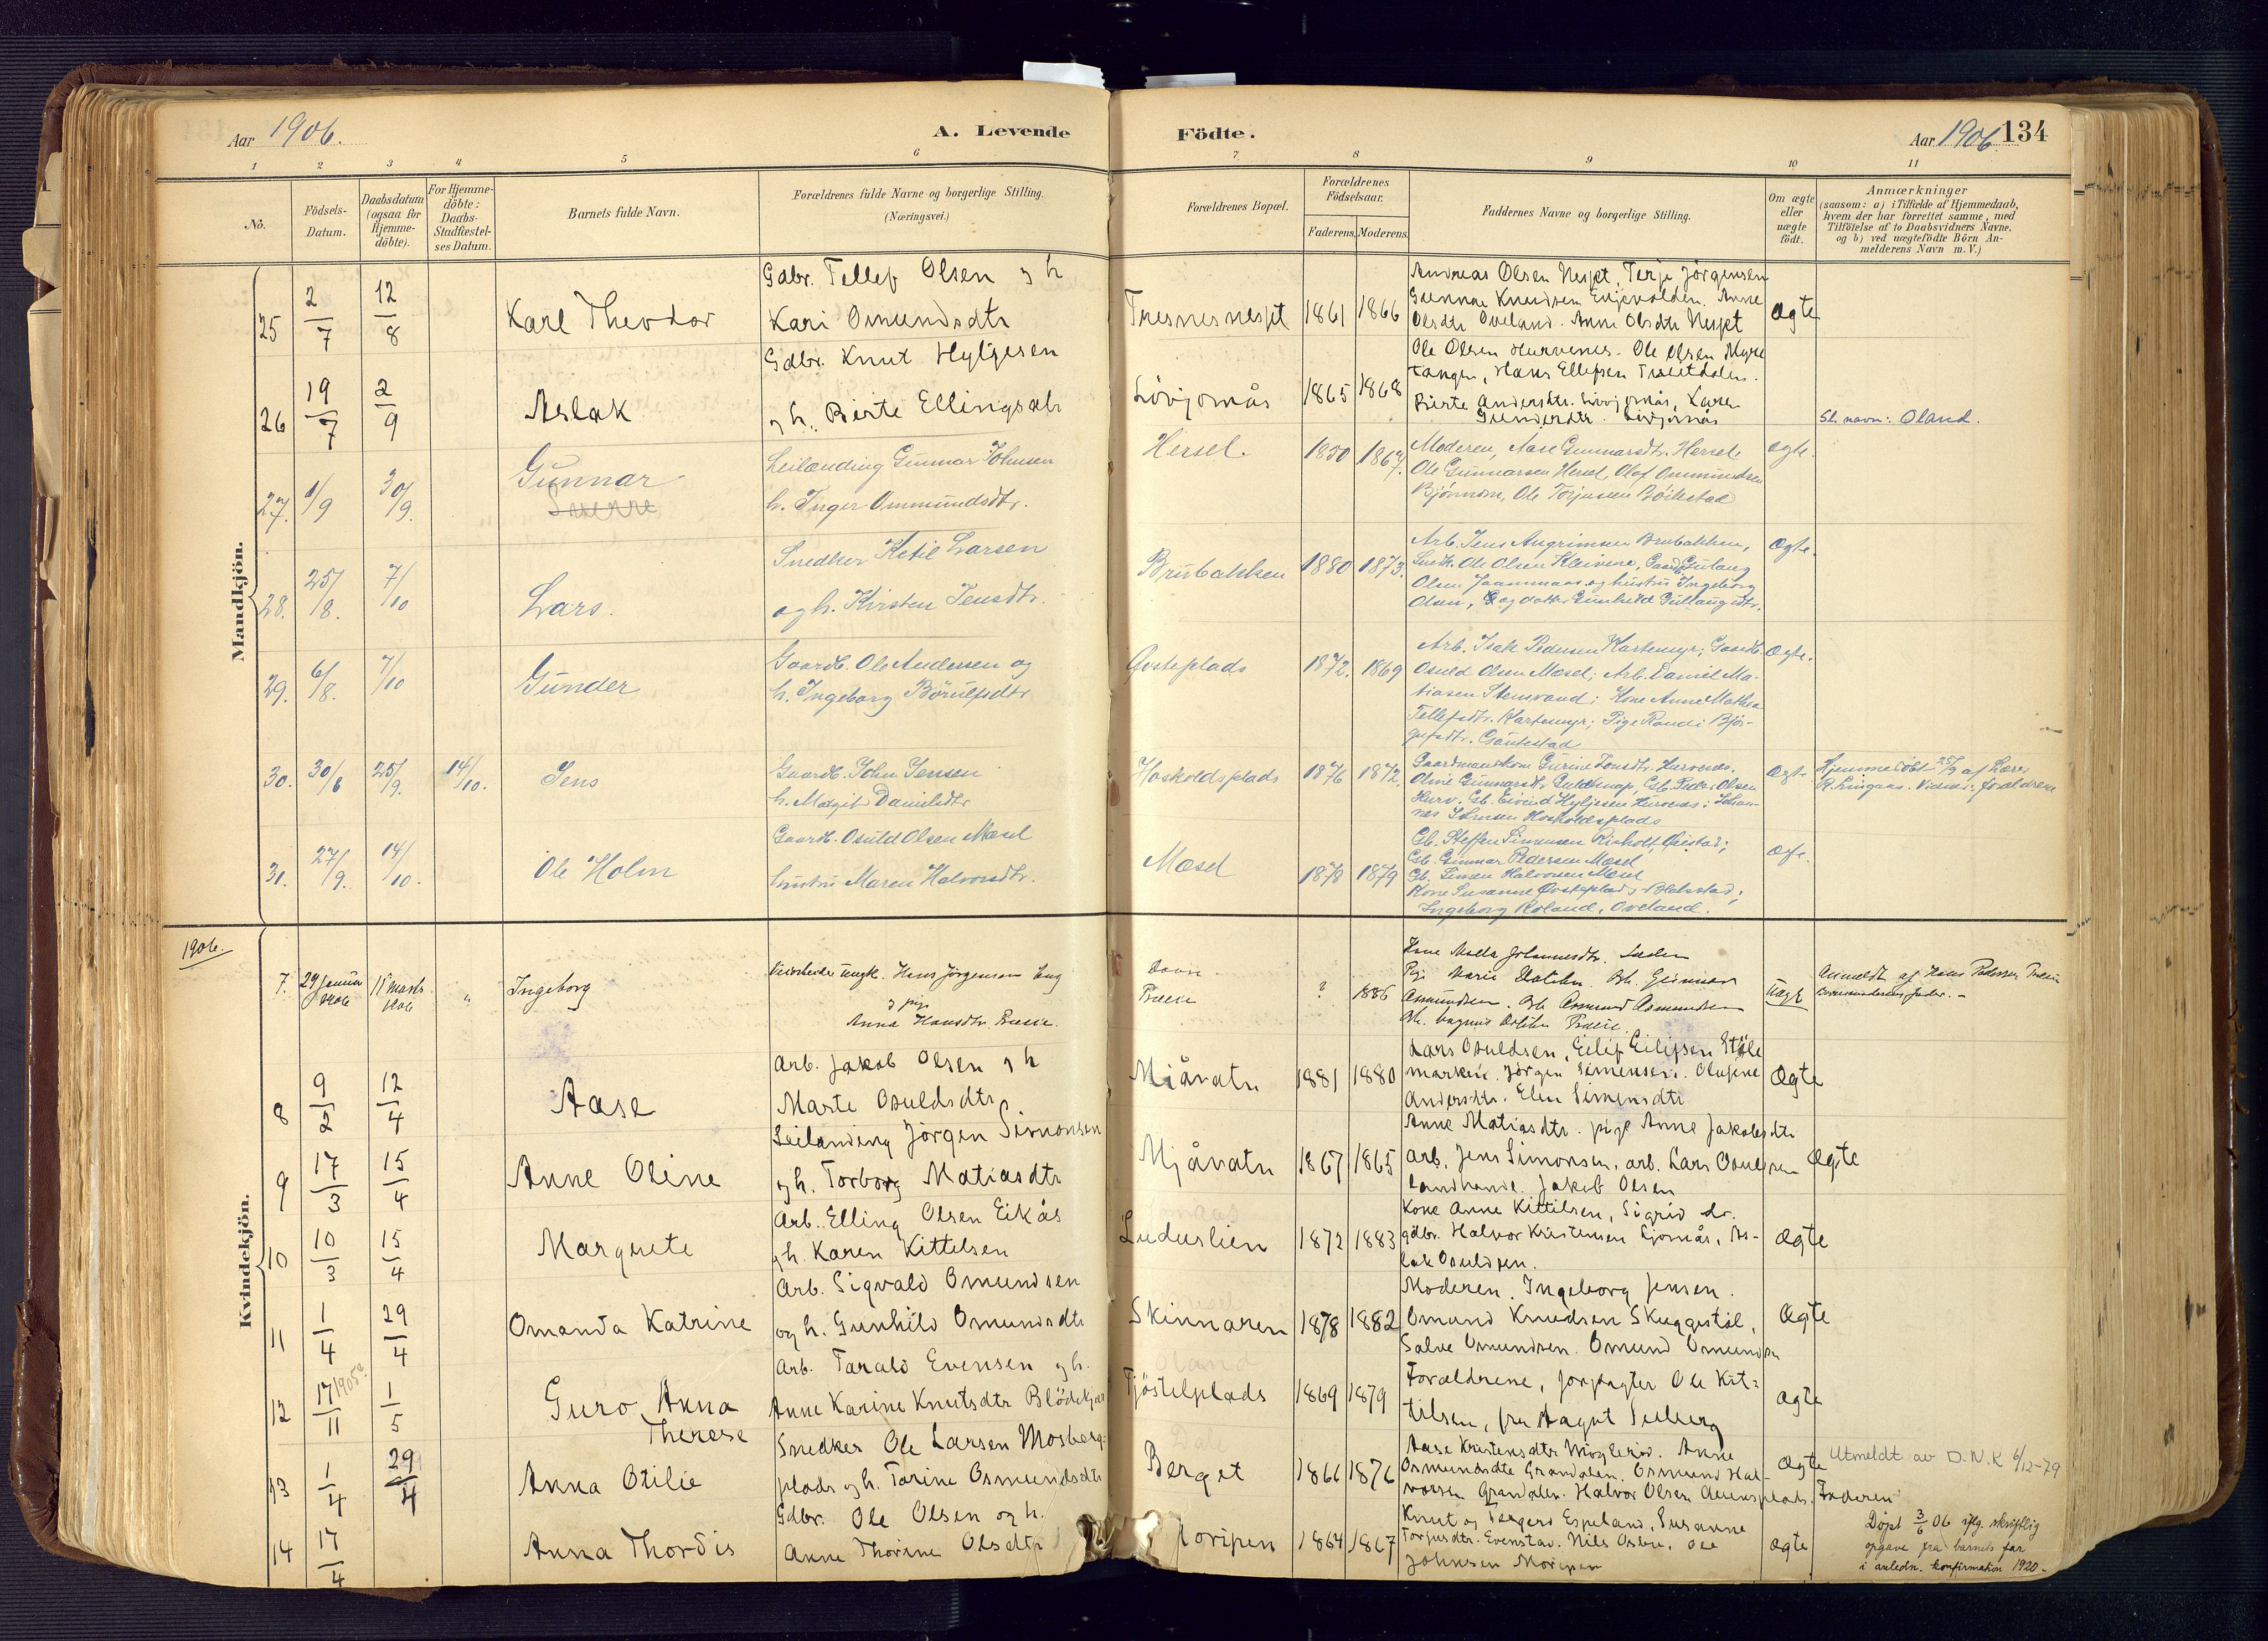 Aar 1906.
A. Levende
Födte.
Aar 1906 134
1 2 3 4 5 6 7 8 9 10 11
No.
Födsels-Datum.
Daabsdatum (ogsaa för Hjemme-döbte).
For Hjemme-döbte: Daabs-Stadfæstel-ses Datum.
Barnets fulde Navn.
Forældrenes fulde Navne og borgerlige Stilling. (Næringsvei.)
Forældrenes Bopæl.
Forældrenes Födselsaar.
Faderens. Moderens.
Faddernes Navne og borgerlige Stilling.
Om ægte eller uægte födt.
Anmærkninger
(saasom: a) i Tilfælde af Hjemmedaab,
hvem der har forrettet samme, med
Tilföielse af to Daabsvidners Navne.
og b) ved uægtefödte Börn An-
melderens Navn m. V.)
Mandkjön.
25 2/7 12/8 Karl Theodor
Gdbr. Tellef Olsen og h
Kari Omundsdtr
1861 1866
Andreas Olsen Neset, Terje Jörgensen
Gunnar Knudsen Anne
Olsdtr Oveland. Anne Olsdtr Neset
Ægte
26 19/7 2/9 Aslak
Gdbr. Knut Hyljesen
og h. Birte Ellingsdtr
Lövjomås 1865 1868
Ole Olsen Hurvenes. Ole Olsen Myre
tangen, Hans Ellefsen
Birte Andersdtr. Lövjomås, Karen
Gundersdtr. Lövjomås
Sl. navn: Oland.
27. 1/9 30/9. Gunnar
Leilænding Gunnar Johnsen
h. Inger Ommundsdtr.
Hersel. 1850 1867.
Moderen, Aase Gunnarsdtr. Hersel
Ole Gunnarsen Hersel, Olaf Ommundsen
Bjönnom, Ole Torjussen Böilestad
Ægte.
28. 25/8. 7/10 Lars.
Snedker Ketil Larsen
og h. Kirsten Jensdtr.
Brubakken 1880 1873.
Arb. Jens Brubakken,
Snedk. Ole Olsen Kleivene,
Olsen og hustru Ingeborg
Olsen, og datter Gunhild
Ægte.
29. 6/8. 7/10 Gunder
Gaardb. Ole Andersen og
h. Ingeborg Börulfsdtr
1872. 1869
Arb. Isak Pedersen Kartemyr; Gaardb.
Osuld Olsen Mæsel; Arb. Daniel Ma-
tiasen Stensvand; Kone Anne Mathea
Tellefsdtr. Kartemyr; Pige Randi Björ-
gufsdtr. Gautestad
Ægte.
30. 30/8 25/9. 14/10. Jens
Gaardb. John Jensen
h. Margit Danielsdtr
Hoskoldsplads 1876 1872.
Gaardmandskone Gurine Jonsdtr. Hurvenes.
Olsen
Eivind Hyljesen Hurvenes; Johan-
nes Johnsen Hoskoldsplads
Ægte
Hjemmedöbt 25/9 af Lærer
R. Lingaas. Vidner: forældrene
31. 27/9. 14/10. Ole Holm
Gaardb. Osuld Olsen Mæsel
hustru Maren Halvorsdtr.
Mæsel 1878 1879
Gb. Steffen Simonsen
Gb. Gunnar Pedersen Mæsel
Gb. Simon Halvorsen Mæsel
Kone Susanne Blakstad;
Ingeborg Roland, Oveland.
Kvindekjön.
1906.
7. 29 Januar 1906 11 Marts 1906 „ Ingeborg
Ungk. Hans Jörgensen
og pige
Anna Hansdtr.
? 1886
Kone Malla Johannesdtr.
Pige Marie Gb. Gunnar
Asmundsen. Gb. Asmund Asmundsen
Uægte
Anmeldt af Hans Pedersen
8 9/2 12/4 Aase
Arb. Jakob Olsen og h
Marte Osuldsdtr
Mjåvatn 1881 1880
Lars Osuldsen, Eilif Eilifsen Stöle
marken. Jörgen Simonsen. Olufine
Andersdtr. Elen Simonsdtr
Ægte
9 17/3 15/4 Anne Oline
Leilænding Jörgen Simonsen
og h. Torborg Matiasdtr
Mjåvatn 1867 1865
Anne Matiasdtr. pige Anne Jakobsdtr
arb. Jens Simonsen, arb. Lars Osuldsen
landhandl. Jakob Olsen
Ægte
10 10/3 15/4 Margrete
Arb. Elling Olsen Eikås
og h. Karen Kittelsen
Luduslien 1872 1883
Kone Anne Kittilsen, Sigrid do.
gdbr. Halvor Kristensen Ljomås, As-
lak Osuldsen.
Ægte
11 1/4 29/4 Omanda Katrine
Arb. Sigvald Omundsen
og h. Gunhild Omundsdtr
Skinnaren 1878 1882
Moderen. Ingeborg Jensen.
Omund Knudsen Skuggestöl,
Salve Omundsen. Omund Omundsen
Ægte
12 17/11 1905? 1/5 Guro Anna
Therese
Arb. Tarald Evensen og h.
Anne Karine Knutsdtr Blödekjær
Tjöstelplads 1869 1879
Forældrene, forpagter Ole Kit-
tilsen, fru Aagot Seeberg
Ægte
13 1/4 29/4 Anna Otilie
Snedker Ole Larsen Mosberg-
plads og h. Tarine Osmundsdtr
Berget 1866 1876
Aase Kristensdtr Anne
Osmundsdtr Grandalen. Osmund Hal-
vorsen Grandalen. Halvor Olsen
Faderen
Ægte
Utmeldt av D.N.K. 6/12-79
14 17/4 Anna Thordis
Gdbr. Ole Olsen og h.
Anne Thorine Olsdtr
Moripen 1864 1867
Knut og Espeland, Susanne
Torjusdtr. Evenstad. Nils Osbu, Ole
Johnsen Moripen
Ægte
Döpt 3/6 06 iflg. skriftlig
opgave fra barnets far
i anledn. konfirmation 1920.